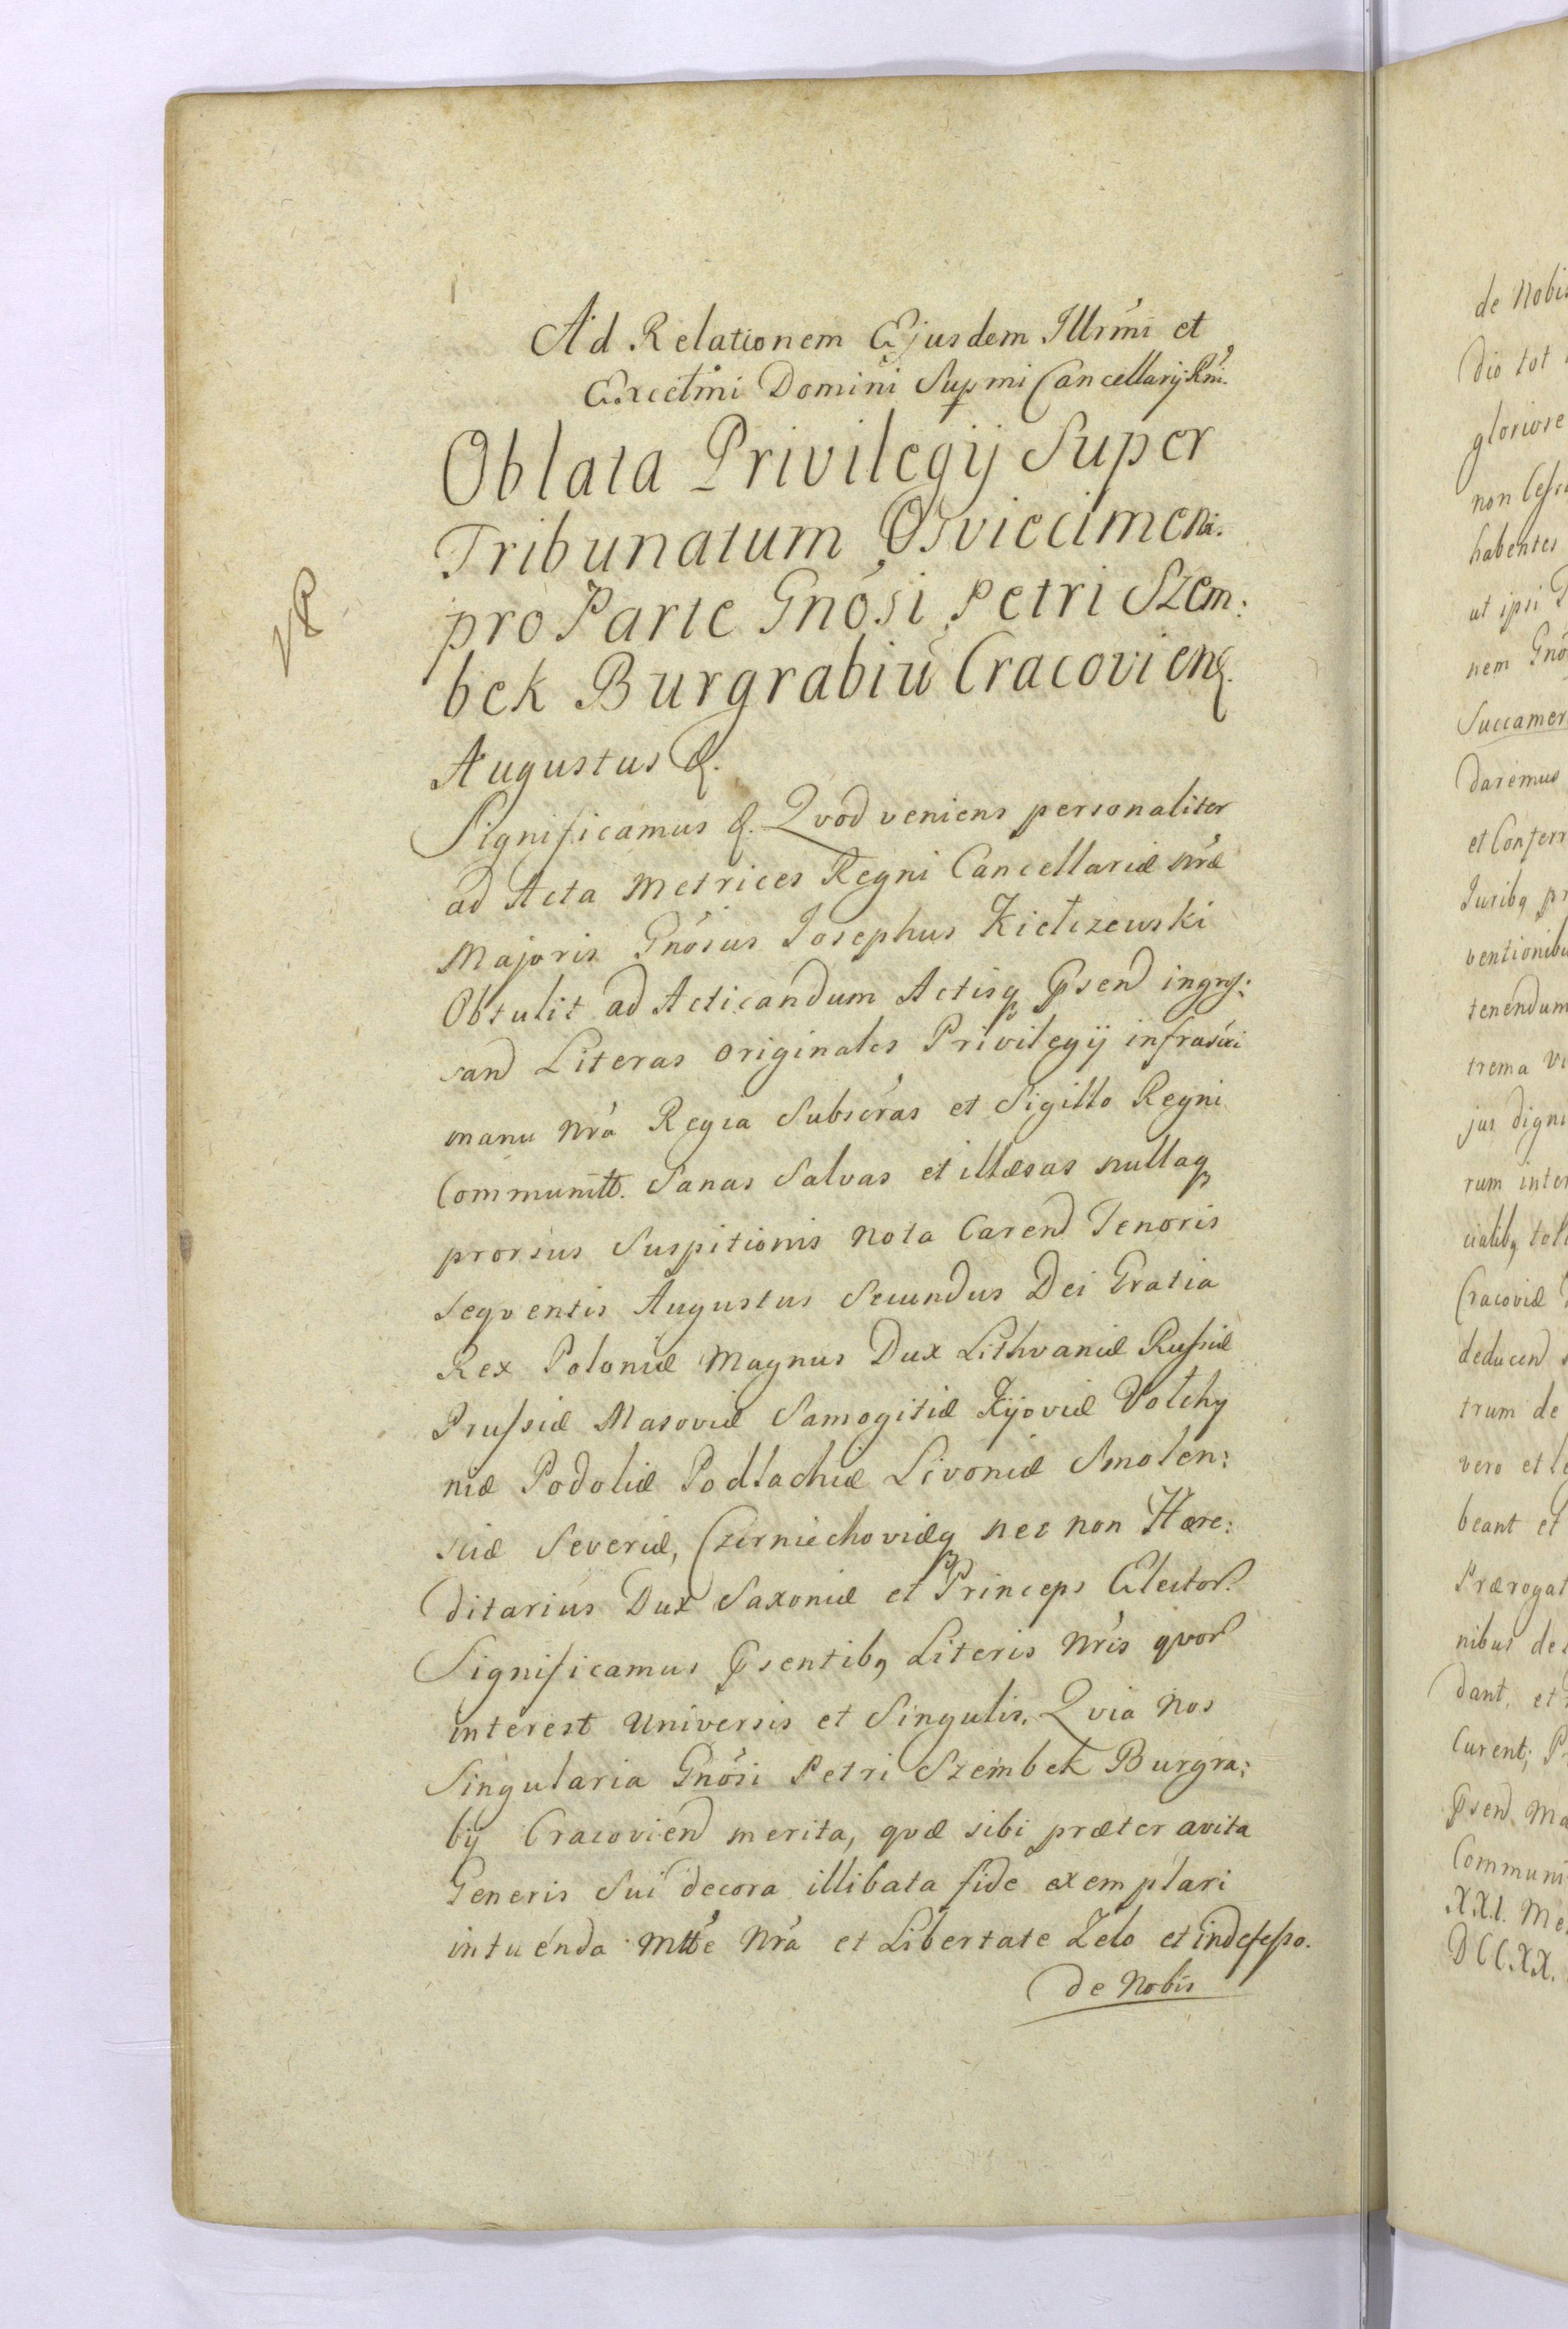 Ad Relationem Ejusdem Illrmi et
Excełmi Domini Supmi Cancellarij Rni.
Oblata Privilegij Super
Tribunatum Osviecimen.
pro Parte Gnosi Petri Szem:
bek Burgrabiu Cracovien.
VR
Augustus &.
Significamus &. Qvod veniens personaliter
ad Acta Metrices Regni Cancellariæ nræ
Majoris Gnosus Josephus Kiełczewski
Obtulit ad Acticandum Actisq Psend ingros:
sand Literas originales Privilegij infrascri
manu nra Regia Subscras et Sigillo Regni
Communitt. Sanas Salvas et illæsas nullaq
prorsus Suspitionis nota Carend Tenoris
seqventis Augustus Secundus Dei Gratia
Rex Poloniæ Magnus Dux Lithvaniæ Russiæ
Prussiæ Masoviæ Samogitiæ Kijoviæ Volhy
niæ Podoliæ Podlachiæ Livoniæ Smolen:
sciæ Severiæ, Czerniechoviæq nec non Hære:
ditarius Dux Saxoniæ et Princeps Elector.
Significamus Psentibq Literis Nris qvor
interest Universis et Singulis. Qvia Nos
Singularia Gnosi Petri Szembek Burgra:
bij Cracoviend merita, qvæ sibi præter avita
Generis Sui decora illibata fide exemplari
in tuenda Mtte Nra et Libertate Zelo et indefesso.
de Nobis
de Nobis
dio tot
gloriose
habentes
ut ipsi
nem Gno
Succamer
daremus
et Conferr
Juribq pr
ventionibu
tenendum
trema vi
jus digni
rum inter
cialibq
Cracoviæ
deducend
trum de
vero et
beant et
Prærogat
nibus de
dant, et
Curent;
Psend Ma
Communi
XXI. Me
DCCXX.